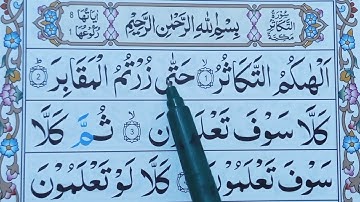 سُورَةُ التَّكَاثُرِ مَكِّيَّة
بِسْمِ اللّٰهِ الرَّحْمٰنِ الرَّحِيْمِ
اٰيَاتُهَا ٨ رُكُوْعُهَا ١
اَلْهٰىكُمُ التَّكَاثُرُ ۙ﴿١﴾ حَتّٰى زُرْتُمُ الْمَقَابِرَ ؕ﴿٢﴾
كَلَّا سَوْفَ تَعْلَمُوْنَ ۙ﴿٣﴾ ثُمَّ كَلَّا
سَوْفَ تَعْلَمُوْنَ كَلَّا لَوْ تَعْلَمُوْنَ